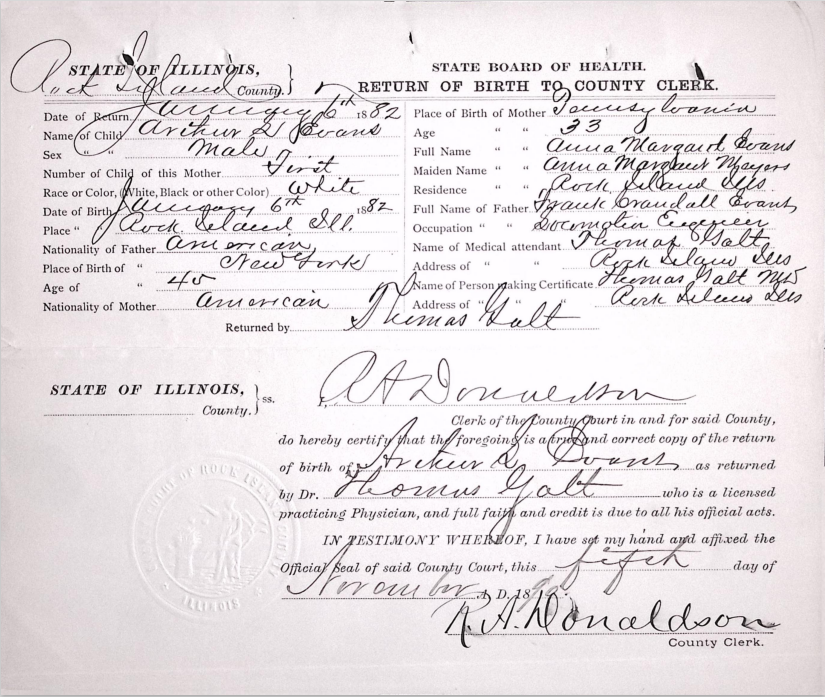 STATE OF ILLINOIS,
Rock Island County.
STATE BOARD OF HEALTH.
RETURN OF BIRTH TO COUNTY CLERK.
Date of Return, January 6th 1882
Name of Child Arthur L Evans
Sex " " Male
Number of Child of this Mother First
Race or Color, (White, Black or other Color) White
Date of Birth January 6th, 1882
Place " Rock Island Ill.
Nationality of Father American
Place of Birth of " New York
Age of " 45
Nationality of Mother American
Place of Birth of Mother Pennsylvania
Age " " 33
Full Name " " Anna Margaret Evans
Maiden Name " " Anna Margaret Meyers
Residence " " Rock Island Ills
Full Name of Father Frank Crandall Evans
Occupation " " Locomotive Engineer
Name of Medical attendant Thomas Galt
Address of " " Rock Island Ills
Name of Person making Certificate Thomas Galt MD
Address of " " " Rock Island Ills
Returned by Thomas Galt
STATE OF ILLINOIS,
County. ss.
I, R A Donaldson
Clerk of the County Court in and for said County,
do hereby certify that the foregoing is a true and correct copy of the return
of birth of Arthur L Evans as returned
by Dr. Thomas Galt who is a licensed
practicing Physician, and full faith and credit is due to all his official acts.
IN TESTIMONY WHEREOF, I have set my hand and affixed the
Official Seal of said County Court, this fifth day of
November A. D. 18
R. A. Donaldson
County Clerk.
ROCK ISLAND COUNTY
ILLINOIS